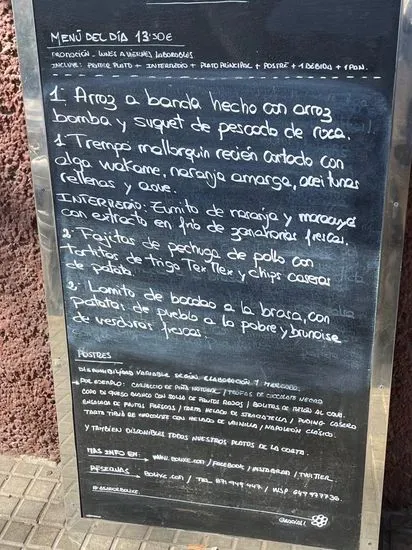 MENÚ DEL DÍA 13'50€
PROMOCIÓN - LUNES A VIERNES LABORABLES
INCLUYE: PRIMER PLATO + INTERMEDIO + PLATO PRINCIPAL + POSTRE + 1 BEBIDA + 1 PAN.
1: Arroz a banda hecho con arroz
bomba y suquet de pescado de roca.
1: Trempó mallorquín recién cortado con
alga wakame, naranja amarga, aceitunas
rellenas y
INTERMEDIO: Zumito de naranja y maracuyá
con extracto en frío de zanahorias frescas.
2: Fajitas de pechuga de pollo con
Tortitas de trigo Tex Mex y chips caseras
de patata.
2: Lomito de bacalao a la brasa, con
patatas de pueblo a lo pobre y brunoise
de verduras frescas.
POSTRES
DISPONIBILIDAD VARIABLE SEGÚN ELABORACIÓN Y MERCADO.
POR EJEMPLO: CARPACCIO DE PIÑA NATURAL / TRUFAS DE CHOCOLATE NEGRO
COPA DE QUESO BLANCO CON SALSA DE FRUTOS ROJOS / BOLITAS DE MELÓN AL CAVA.
ENSALADA DE FRUTAS FRESCAS / TARTA HELADA DE STRACIATELLA / PUDING CASERO
TARTA TIBIA DE CHOCOLATE CON HELADO DE VAINILLA / NAPOLEÓN CLÁSICO.
Y TAMBIÉN DISPONIBLES TODOS NUESTROS PLATOS DE LA CARTA.
MÁS INFO EN: WWW. .COM / FACEBOOK / INSTAGRAM / TWITTER
RESERVAS .COM / TEL. 871 949 447 / WSP